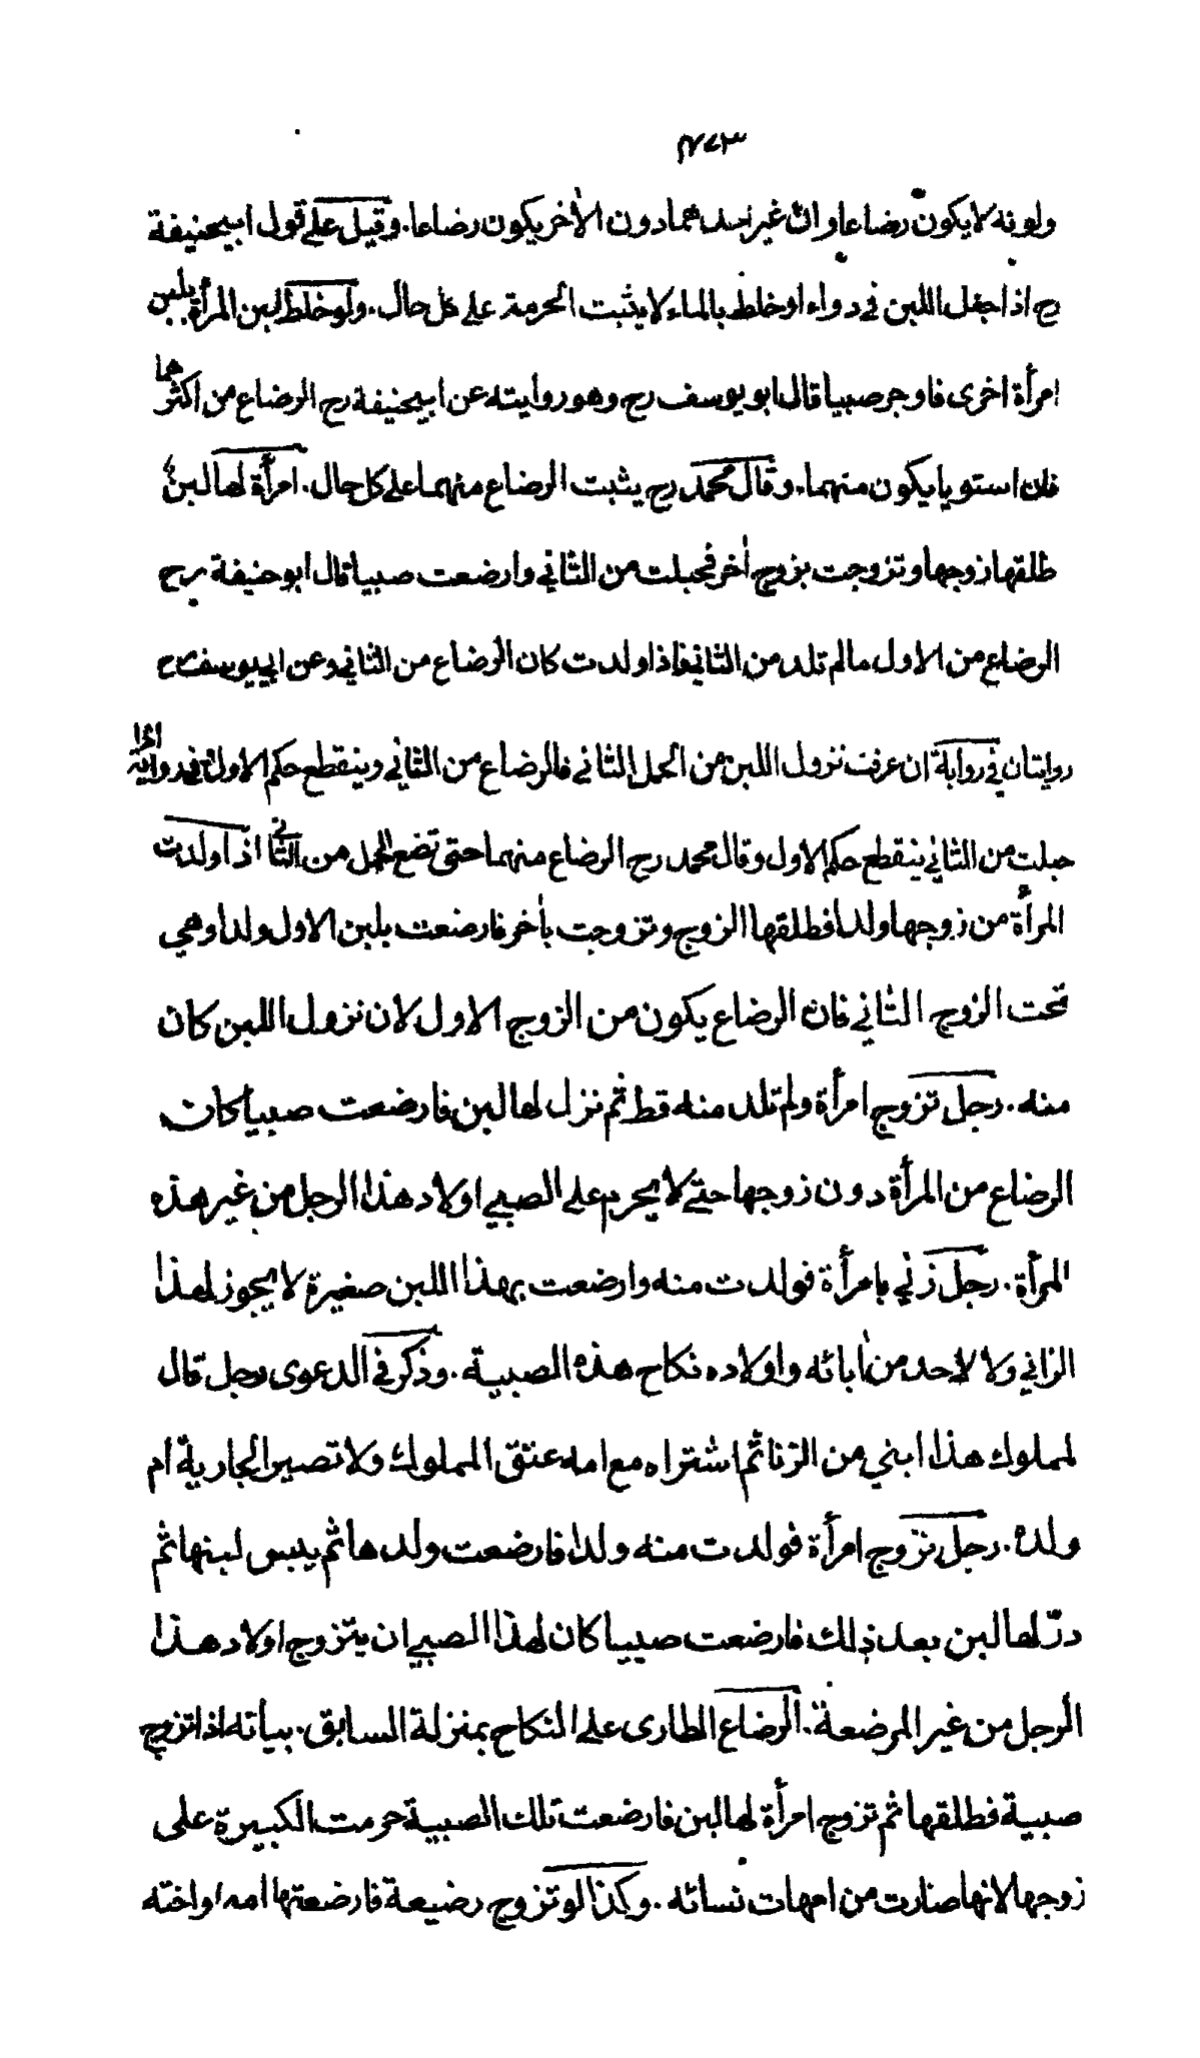 ٤٧٣
ولونه لا يكون رضاعا وان غير احدهما دون الأخر يكون رضاعا . وقيل على قول ابيحنيفة
رح اذا جعل اللبن في دواء او خلط بالماء لا يثبت الحرمة على كل حال . ولو خلط لبن المرأة بلبن
امرأة اخرى فاوجر صبيا قال ابو يوسف رح وهو روايته عن ابيحنيفة رح الرضاع من اكثرهما
فان استويا يكون منهما . وقال محمد رح يثبت الرضاع منهما على كل حال . امرأة لها لبن
طلقها زوجها وتزوجت بزوج أخر فحبلت من الثاني وارضعت صبيا قال ابو حنيفة رح
الرضاع من الاول مالم تلد من الثاني فاذا ولدت كان الرضاع من الثاني وعن ابي يوسف رح
روايتان في رواية ان عرفت نزول اللبن من الحمل الثاني فالرضاع من الثاني وينقطع حكم الاول وفي رواية اذا
حبلت من الثاني ينقطع حكم الاول وقال محمد رح الرضاع منهما حتى تضع الحمل من الثاني اذا ولدت
المرأة من زوجها ولدا فطلقها الزوج وتزوجت بأخر فارضعت بلبن الاول ولدا وهي
تحت الزوج الثاني فان الرضاع يكون من الزوج الاول لان نزول اللبن كان
منه . رجل تزوج امرأة ولم تلد منه قط ثم نزل لها لبن فارضعت صبيا كان
الرضاع من المرأة دون زوجها حتى لا يحرم على الصبي اولاد هذا الرجل من غير هذه
المرأة . رجل زني بامرأة فولدت منه وارضعت بهذا اللبن صغيرة لا يجوز لهذا
الزاني ولا لاحد من أبائه واولاده نكاح هذه الصبية . وذكر في الدعوى رجل قال
لمملوك هذا ابني من الزنا ثم اشتراه مع امه عتق المملوك ولا تصير الجارية ام
ولده . رجل تزوج امرأة فولدت منه ولدا فارضعت ولدها ثم يبس لبنها ثم
درّ لها لبن بعد ذلك فارضعت صبيا كان لهذا الصبي ان يتزوج اولاد هذا
الرجل من غير المرضعة . الرضاع الطارى على النكاح بمنزلة السابق . بيانه اذا تزوج
صبية فطلقها ثم تزوج امرأة لها لبن فارضعت تلك الصبية حرمت الكبيرة على
زوجها لانها صارت من امهات نسائه . وكذا لو تزوج رضيعة فارضعتها امه او اخته